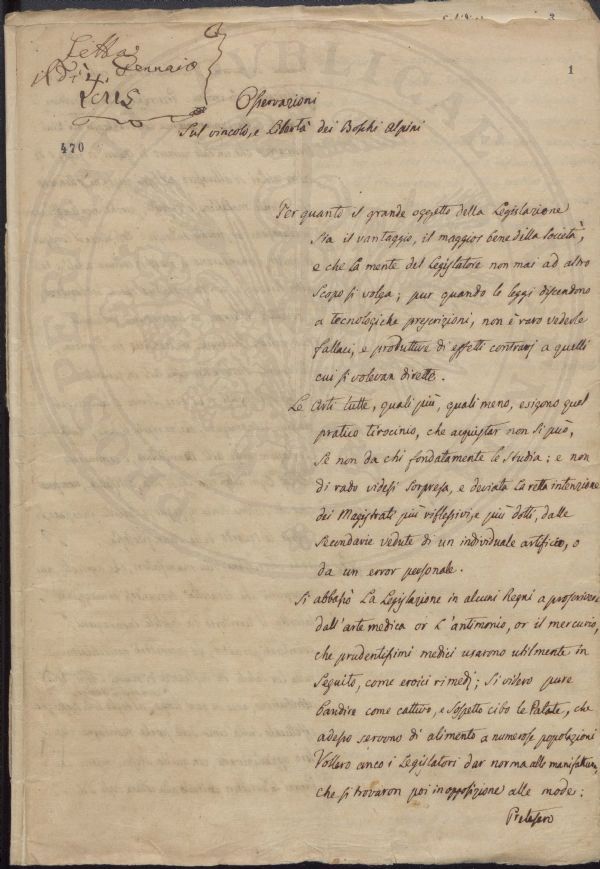 Letta
il Dì 4 Gennaio
1
Osservazioni
Sul vincolo, e libertà dei Boschi Alpini
470
Per quanto il grande oggetto della Legislazione
sia il vantaggio, il maggior bene della Società,
e che la mente del Legislatore non mai ad altro
scopo si volga; pur quando le leggi discendono
a tecnologiche prescrizioni, non è raro vederle
fallaci, e produttive di effetti contrarj a quelli
cui si volevan dirette.
Le Arti tutte, quali più, quali meno, esigono quel
pratico tirocinio, che acquistar non si può,
se non da chi fondatamente le studia; e non
di rado videsi sorpresa, e deviata la retta intenzione
dei Magistrati più riflessivi, e più dotti, dalle
secondarie vedute di un individuale artificio, o
da un error personale.
Si abbassò La Legislazione in alcuni Regni a proscrivere
dall'arte medica or L'antimonio, or il mercurio,
che prudentissimi medici usarono utilmente in
seguito, come eroici rimedj; Si videro pure
bandire come cattivo, e sospetto cibo le Patate, che
adesso servono di alimento a numerose popolazioni
Vollero anco i Legislatori dar norma alle manifatture,
che si trovaron poi in opposizione alle mode:
Pretesero